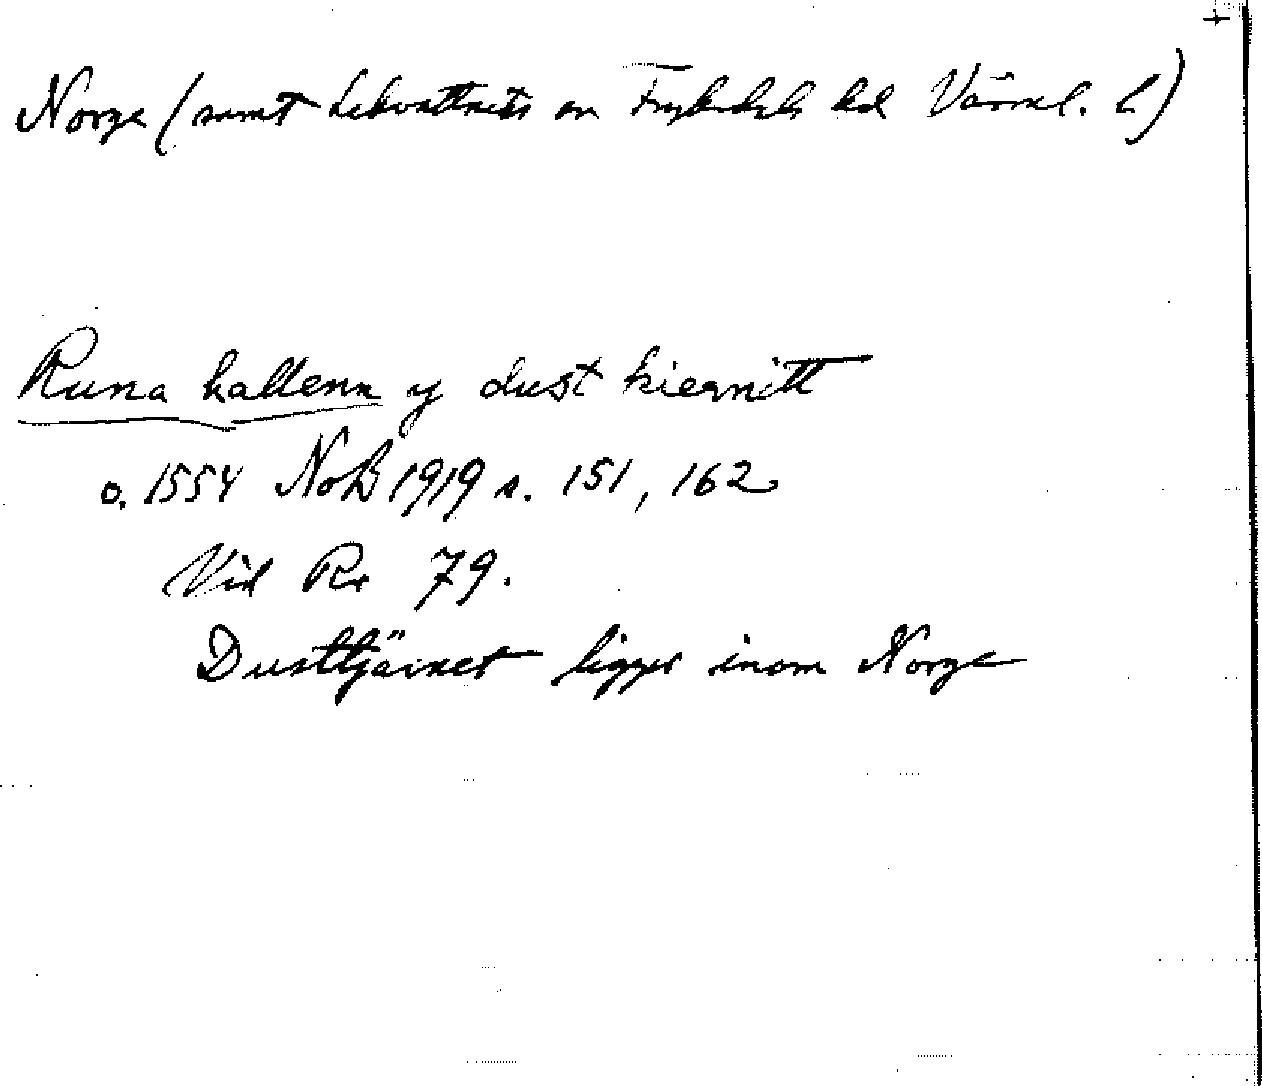 Norge (samt
Fryksdals hd Värml. l)
Runa hallenn y dust kiernitt
o. 1554 NoB 1919 s. 151, 162
Vid Rr 79.
Dusttjärnet ligger inom Norge